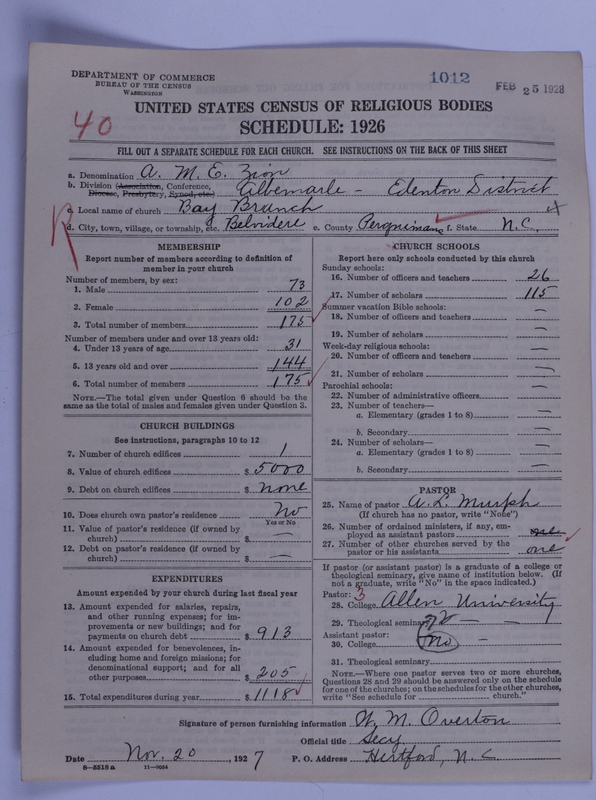 DEPARTMENT OF COMMERCE
BUREAU OF THE CENSUS
WASHINGTON
1012
FEB 25 1928
UNITED STATES CENSUS OF RELIGIOUS BODIES
SCHEDULE: 1926
40
FILL OUT A SEPARATE SCHEDULE FOR EACH CHURCH. SEE INSTRUCTIONS ON THE BACK OF THIS SHEET
a. Denomination A. M. E. Zion
b. Division (Association, Conference, Diocese, Presbytery, Synod, etc.) Albemarle – Edenton District
c. Local name of church Bay Branch
d. City, town, village, or township, etc. Belvidere e. County Perquimans f. State N.C.
R
MEMBERSHIP
Report number of members according to definition of
member in your church
Number of members, by sex:
1. Male 73
2. Female 102
3. Total number of members 175
Number of members under and over 13 years old:
4. Under 13 years of age 31
5. 13 years old and over 144
6. Total number of members 175
NOTE.—The total given under Question 6 should be
the same as the total of males and females given under Question 3.
CHURCH BUILDINGS
See instructions, paragraphs 10 to 12
7. Number of church edifices 1
8. Value of church edifices $ 5000
9. Debt on church edifices $ none
10. Does church own pastor's residence? No
Yes or No
11. Value of pastor's residence (if owned by
church) $ —
12. Debt on pastor's residence (if owned by
church) $ —
EXPENDITURES
Amount expended by your church during last fiscal year
13. Amount expended for salaries, repairs,
and other running expenses; for im-
provements or new buildings; and for
payments on church debt $ 913
14. Amount expended for benevolences, in-
cluding home and foreign missions; for
denominational support; and for all
other purposes $ 205
15. Total expenditures during year $ 1118
CHURCH SCHOOLS
Report here only schools conducted by this church
Sunday schools:
16. Number of officers and teachers 26
17. Number of scholars 115
Summer vacation Bible schools:
18. Number of officers and teachers —
19. Number of scholars —
Week-day religious schools:
20. Number of officers and teachers —
21. Number of scholars —
Parochial schools:
22. Number of administrative officers —
23. Number of teachers—
a. Elementary (grades 1 to 8) —
b. Secondary —
24. Number of scholars—
a. Elementary (grades 1 to 8) —
b. Secondary —
PASTOR
25. Name of pastor A. L. Murph
(If church has no pastor, write "None")
26. Number of ordained ministers, if any, em-
ployed as assistant pastors one
27. Number of other churches served by the
pastor or his assistants one
If pastor (or assistant pastor) is a graduate of a college or
theological seminary, give name of institution below. (If
not a graduate, write "No" in the space indicated.)
Pastor: 3
28. College Allen University
29. Theological seminary — —
Assistant pastor:
30. College No
31. Theological seminary
NOTE.—Where one pastor serves two or more churches,
Questions 28 and 29 should be answered only on the schedule
for one of the churches; on the schedules for the other churches,
write "See schedule for ........ church."
Signature of person furnishing information W. M. Overton
Official title Secy
Date Nov. 20, 1927 P. O. Address Hertford, N.C.
8—5518a 11—9034